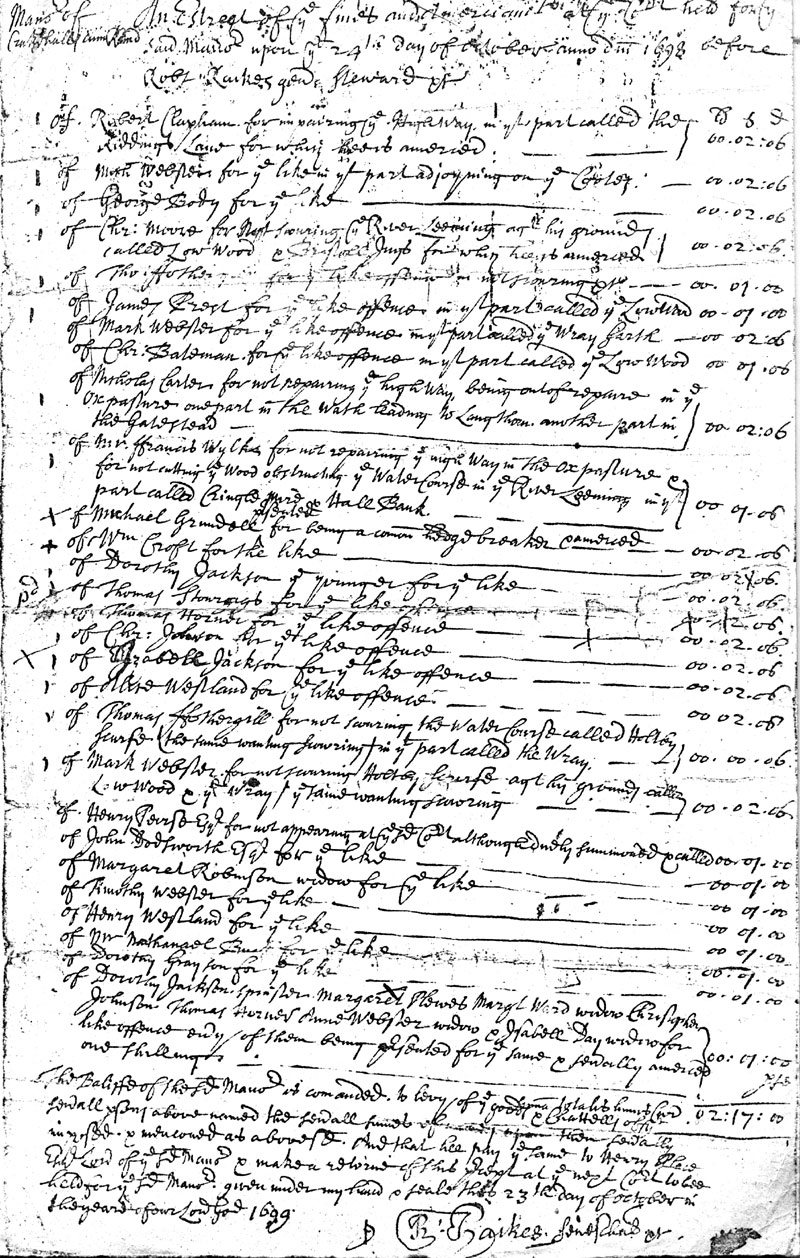 Mano^r of An Estreat of y^e fines and Amerciam^ts at y^e Co^rt held for y^e
Crakehall cum Rand said Mano^r upon y^e 24^th day of October anno dm 1698 before
Rob^t Raikes gen^t Steward
ł s d
of Robert Clapham for impairing y^e High Way in y^t part called the
Riddings Lane for which hee is amercied 00:02:06
of Mark Webster for y^e like in y^t part adjoyning on y^e 00:02:06
of George Body for y^e like 00:02:06
of Chr: Moore for Not scouring y^e River Leeming ag^st his ground
called Low Wood & Ings for which hee is amercied 00:02:06
of Tho: ffother for y^e like offence in not scouring 00:01:00
of James Prest for y^e like offence in y^t part called y^e Low Wood 00:01:00
of Mark Webster for y^e like offence in y^t part called y^e Wray Garth 00:02:06
of Chr: Bateman for y^e like offence in y^t part called y^e Low Wood 00:01:06
of Nicholas Carter for not repairing y^e high Way being out of repaire in y^e
Ox pasture one part in the Wath leading to Langthorn another part in
the Gatestead 00:02:06
of M^r ffrancis Wylkes for not repairing y^e high Way in the Ox pasture &
for not cutting y^e Wood obstructing y^e Water Course in y^e River Leeming in y^t
part called Cringle & Hall Bank 00:01:06
of Michael Grundell p^rsented for being a comon hedge breaker & amercied 00:02:06
of W^m Croft for the like 00:02:06
of Dorothy Jackson y^e younger for y^e like 00:02:06
pd of Thomas Sturgys for y^e like offence 00:02:06
of Thomas Horner for y^e like offence 00:02:06
of Chr: Johnson for y^e like offence 00:02:06
of Isabell Jackson for y^e like offence 00:02:06
of Westland for y^e like offence 00:02:06
of Thomas ffothergill for not scouring the Water Course called Holtby
Scurfe (the same wanting scowring) in y^t part called the Wray 00:00:06
of Mark Webster for not scouring Holtby Scurfe ag^t his ground called
Low Wood & y^e Wray / y^e same wanting scoring 00:02:06
of Henry Peirse Esq^r for not appearing at y^e s^d Co^rt although duely summoned & called 00:01:00
of John Dodsworth Esq^r for y^e like 00:01:00
of Margaret Robinson widow for y^e like 00:01:00
of Timothy Webster for y^e like 00:01:00
of Henry Westland for y^e like 00:01:00
of M^r Nathanael for y^e like 00:01:00
of Dorothy Grayson for y^e like 00:01:00
of Dorothy Jackson spinster Margaret Plewes Marg^t Ward widow Christopher
Johnson Thomas Horner Anne Webster widow & Isabell Day widow for
like offence every of them being p^rsented for y^e same & sev^rally amercied
one shilling 00:01:00
sma totalis hujus Cur 02:17:00
The Baliffe of the s^d Mano^r is comanded to levy of y^e goods & Chattells of y^e
sev^rall p^rsons above named the sev^rall fumes upon them sev^rally
imposed & menconed as aboves^d. And that hee pay y^e same to Henry
Esq^r Lord of y^e s^d Mano^r & make a retorne of this at y^e next Co^rt to bee
held for y^e s^d Mano^r. given under my hand & seale this 23^th day of october in
the yeare of our Lord God 1699
R: Raikes Seneschal